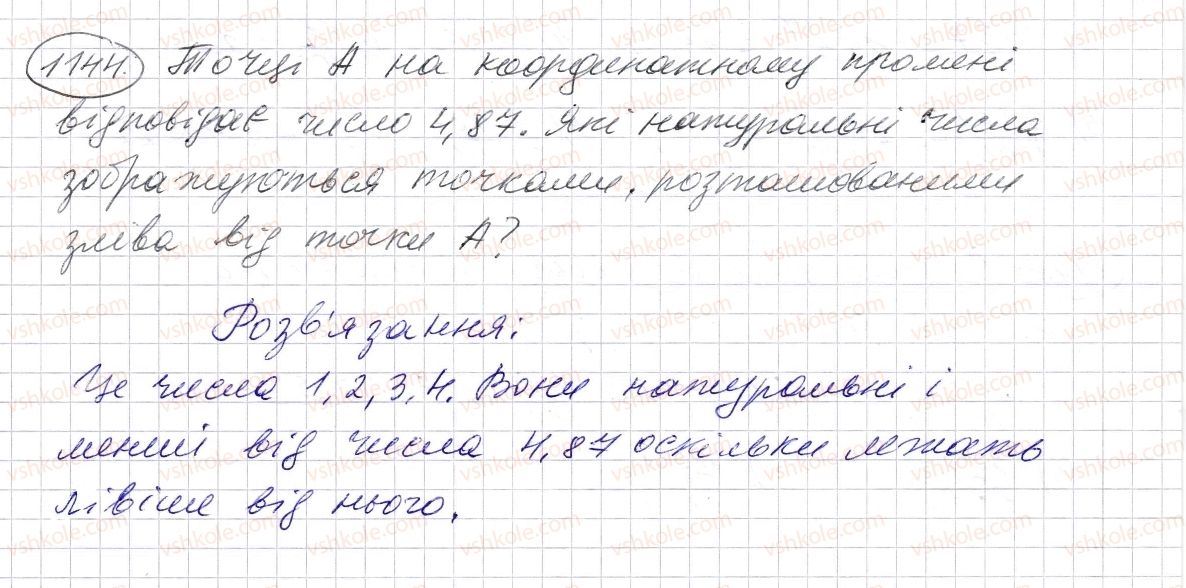 1144. Точці А на координатному промені
відповідає число 4,87. Які натуральні числа
зображуються точками, розташованими
зліва від точки А?
Розв'язання:
Це числа 1, 2, 3, 4. Вони натуральні і
менші від числа 4,87 оскільки лежать
лівіше від нього.